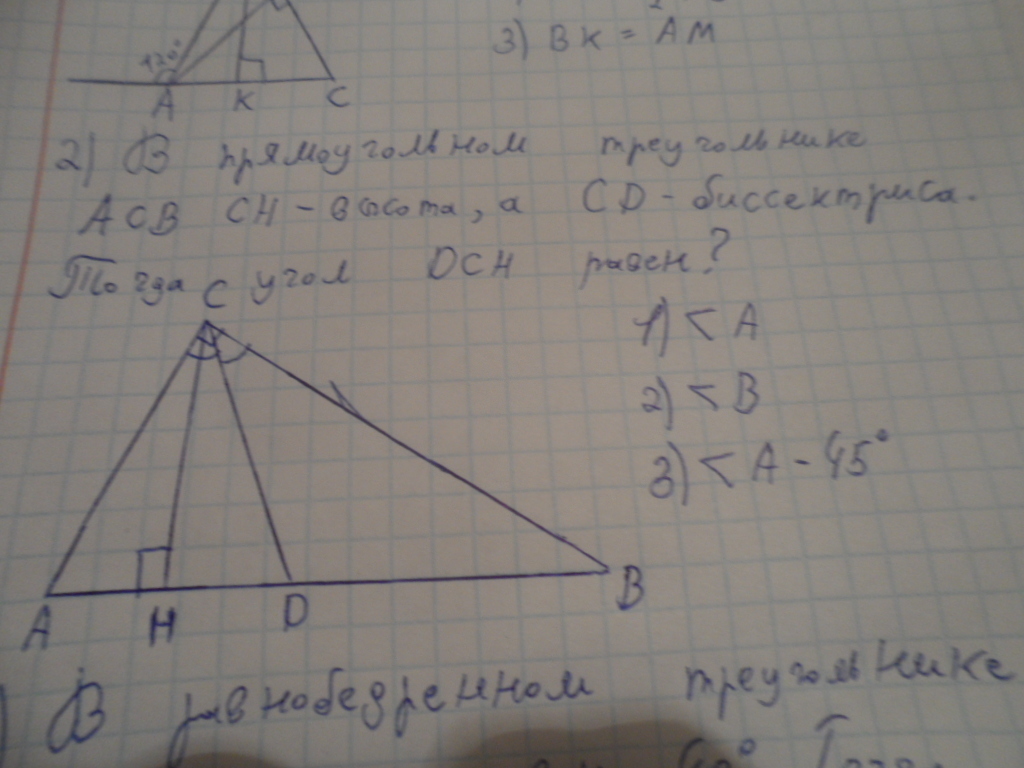 3) BK = AM
120°
A K C
2) В прямоугольном треугольнике
ACB CH - высота, а CD - биссектриса.
Тогда угол DCH равен?
C
1) < A
2) < B
3) < A - 45°
A H D B
) В равнобедренном треугольнике
60°